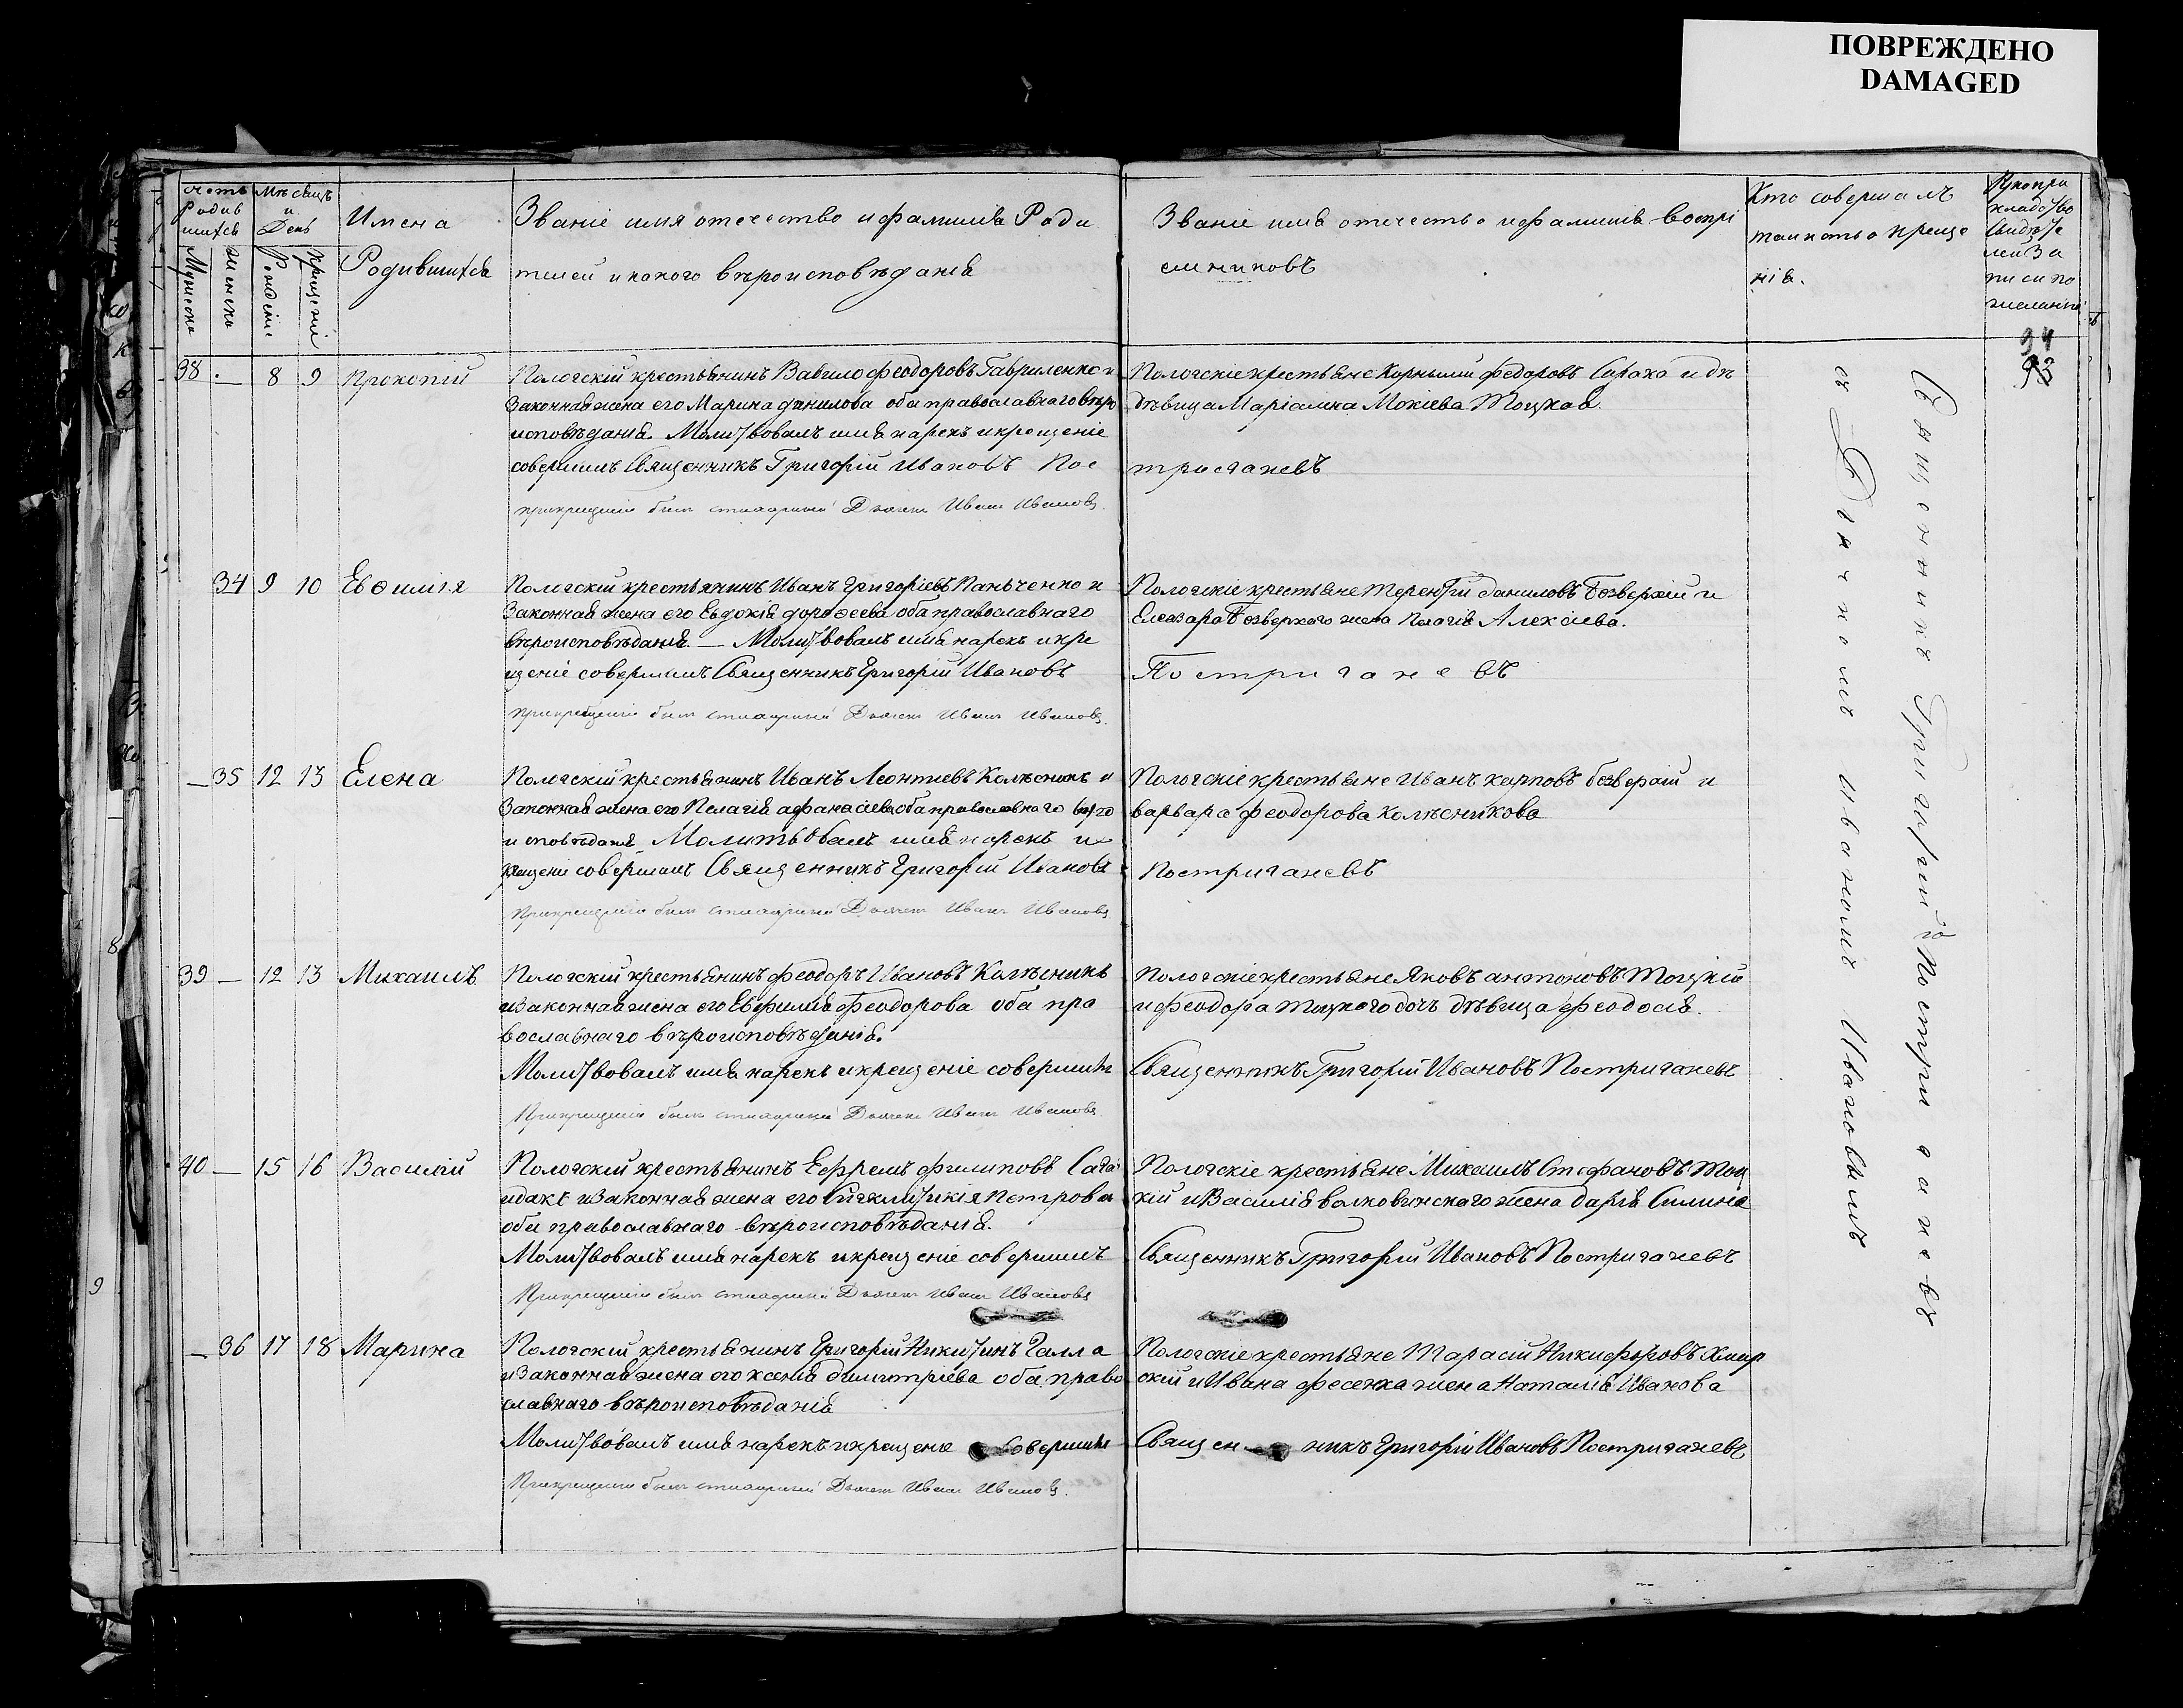 ПОВРЕЖДЕНО
DAMAGED
Счетъ Родив шихся
Мѣсяцъ и День
Имена Родившихся
Званіе имя отечество и фамилія Роди
телей и какого вѣроисповѣданія
Званіе имя отечество и фамилія воспрі
емниковъ
Кто совершалъ
таинство креще
нія.
Рукопри
кладство
свидѣте
лей за
писи по
желанію
Мужеска
женска
Рожденіе
Крещеніе
94
93
38 . — 8 9 Прокопій
Пологскій крестьянинъ Вавило Феодоровъ Гавриленко и
Законная жена его Марина Данилова оба православнаго вѣро
исповѣданія. Молитвовалъ имя нарекъ и крещеніе
совершилъ Священникъ Григорій Ивановъ Пос
тригачевъ
при крещеніи былъ стихарный Дьячекъ Иванъ Ивановъ
Пологскіе крестьяне Корнилій Федоровъ Сорока и дѣ
дѣвица Маріамна Мокіева Тоцкая.
34 9 10 Евѳимія
Пологскій крестьянинъ Иванъ Григоріевъ Панченко и
Законная жена его Евдокія Дороѳеева оба православнаго
вѣроисповѣданія. — Молитвовалъ имя нарекъ и кре
щеніе совершилъ Священникъ Григорій Ивановъ
Постригачевъ
При крещеніи былъ стихарный Дьячекъ Иванъ Ивановъ.
Пологскіе крестьяне Терентій Даниловъ Безверхій и
Елеазара Безверхого жена Пелагія Алексіева.
— 35 12 13 Елена
Пологскій крестьянинъ Иванъ Леонтіевъ Колѣсникъ и
Законная жена его Пелагія Афанасіева оба православнаго вѣро
исповѣданія Молитвовалъ имя нарекъ и
крещеніе совершилъ Священникъ Григорій Ивановъ
Постригачевъ
При крещеніи былъ стихарный Дьячекъ Иванъ Ивановъ
Пологскіе крестьяне Иванъ Карповъ Безверхій и
Варвара Феодорова Колѣсникова
39 — 12 13 Михаилъ
Пологскій крестьянинъ Феодоръ Ивановъ Колѣсникъ
и Законная жена его Евфимія Феодорова оба пра
вославнаго вѣроисповѣданія.
Молитвовалъ имя нарекъ и крещеніе совершилъ
Священникъ Григорій Ивановъ Постригачевъ
При крещеніи былъ стихарный Дьячекъ Иванъ Ивановъ
Пологскіе крестьяне Яковъ Антоновъ Тоцкій
и Феодора Тоцкого дочь дѣвица Феодосія.
40 — 15 16 Василій
Пологскій крестьянинъ Ефремъ Филиповъ Сагай
дакъ и Законная жена его Сигклитикія Петрова
оба православнаго вѣроисповѣданія.
Молитвовалъ имя нарекъ и крещеніе совершилъ
Священникъ Григорій Ивановъ Постригачевъ
При крещеніи былъ стихарный Дьячекъ Иванъ Ивановъ
Пологскіе крестьяне Михаилъ Стефановъ Тоц
кій и Василія Волковинскаго жена Дарія Силина
— 36 17 18 Марина
Пологскій крестьянинъ Григорій Никитинъ Галла
и Законная жена его Ксенія Димитріева оба право
славнаго вѣроисповѣданія
Молитвовалъ имя нарекъ и крещеніе совершилъ
Священникъ Григорій Ивановъ Постригачевъ
При крещеніи былъ стихарный Дьячекъ Иванъ Ивановъ.
Пологскіе крестьяне Тарасій Никифоровъ Хмар
скій и Ивана Фесенка жена Наталія Иванова
Священникъ Григорий Постригачевъ
съ Дьячкомъ Иваномъ Ивановымъ
8
9